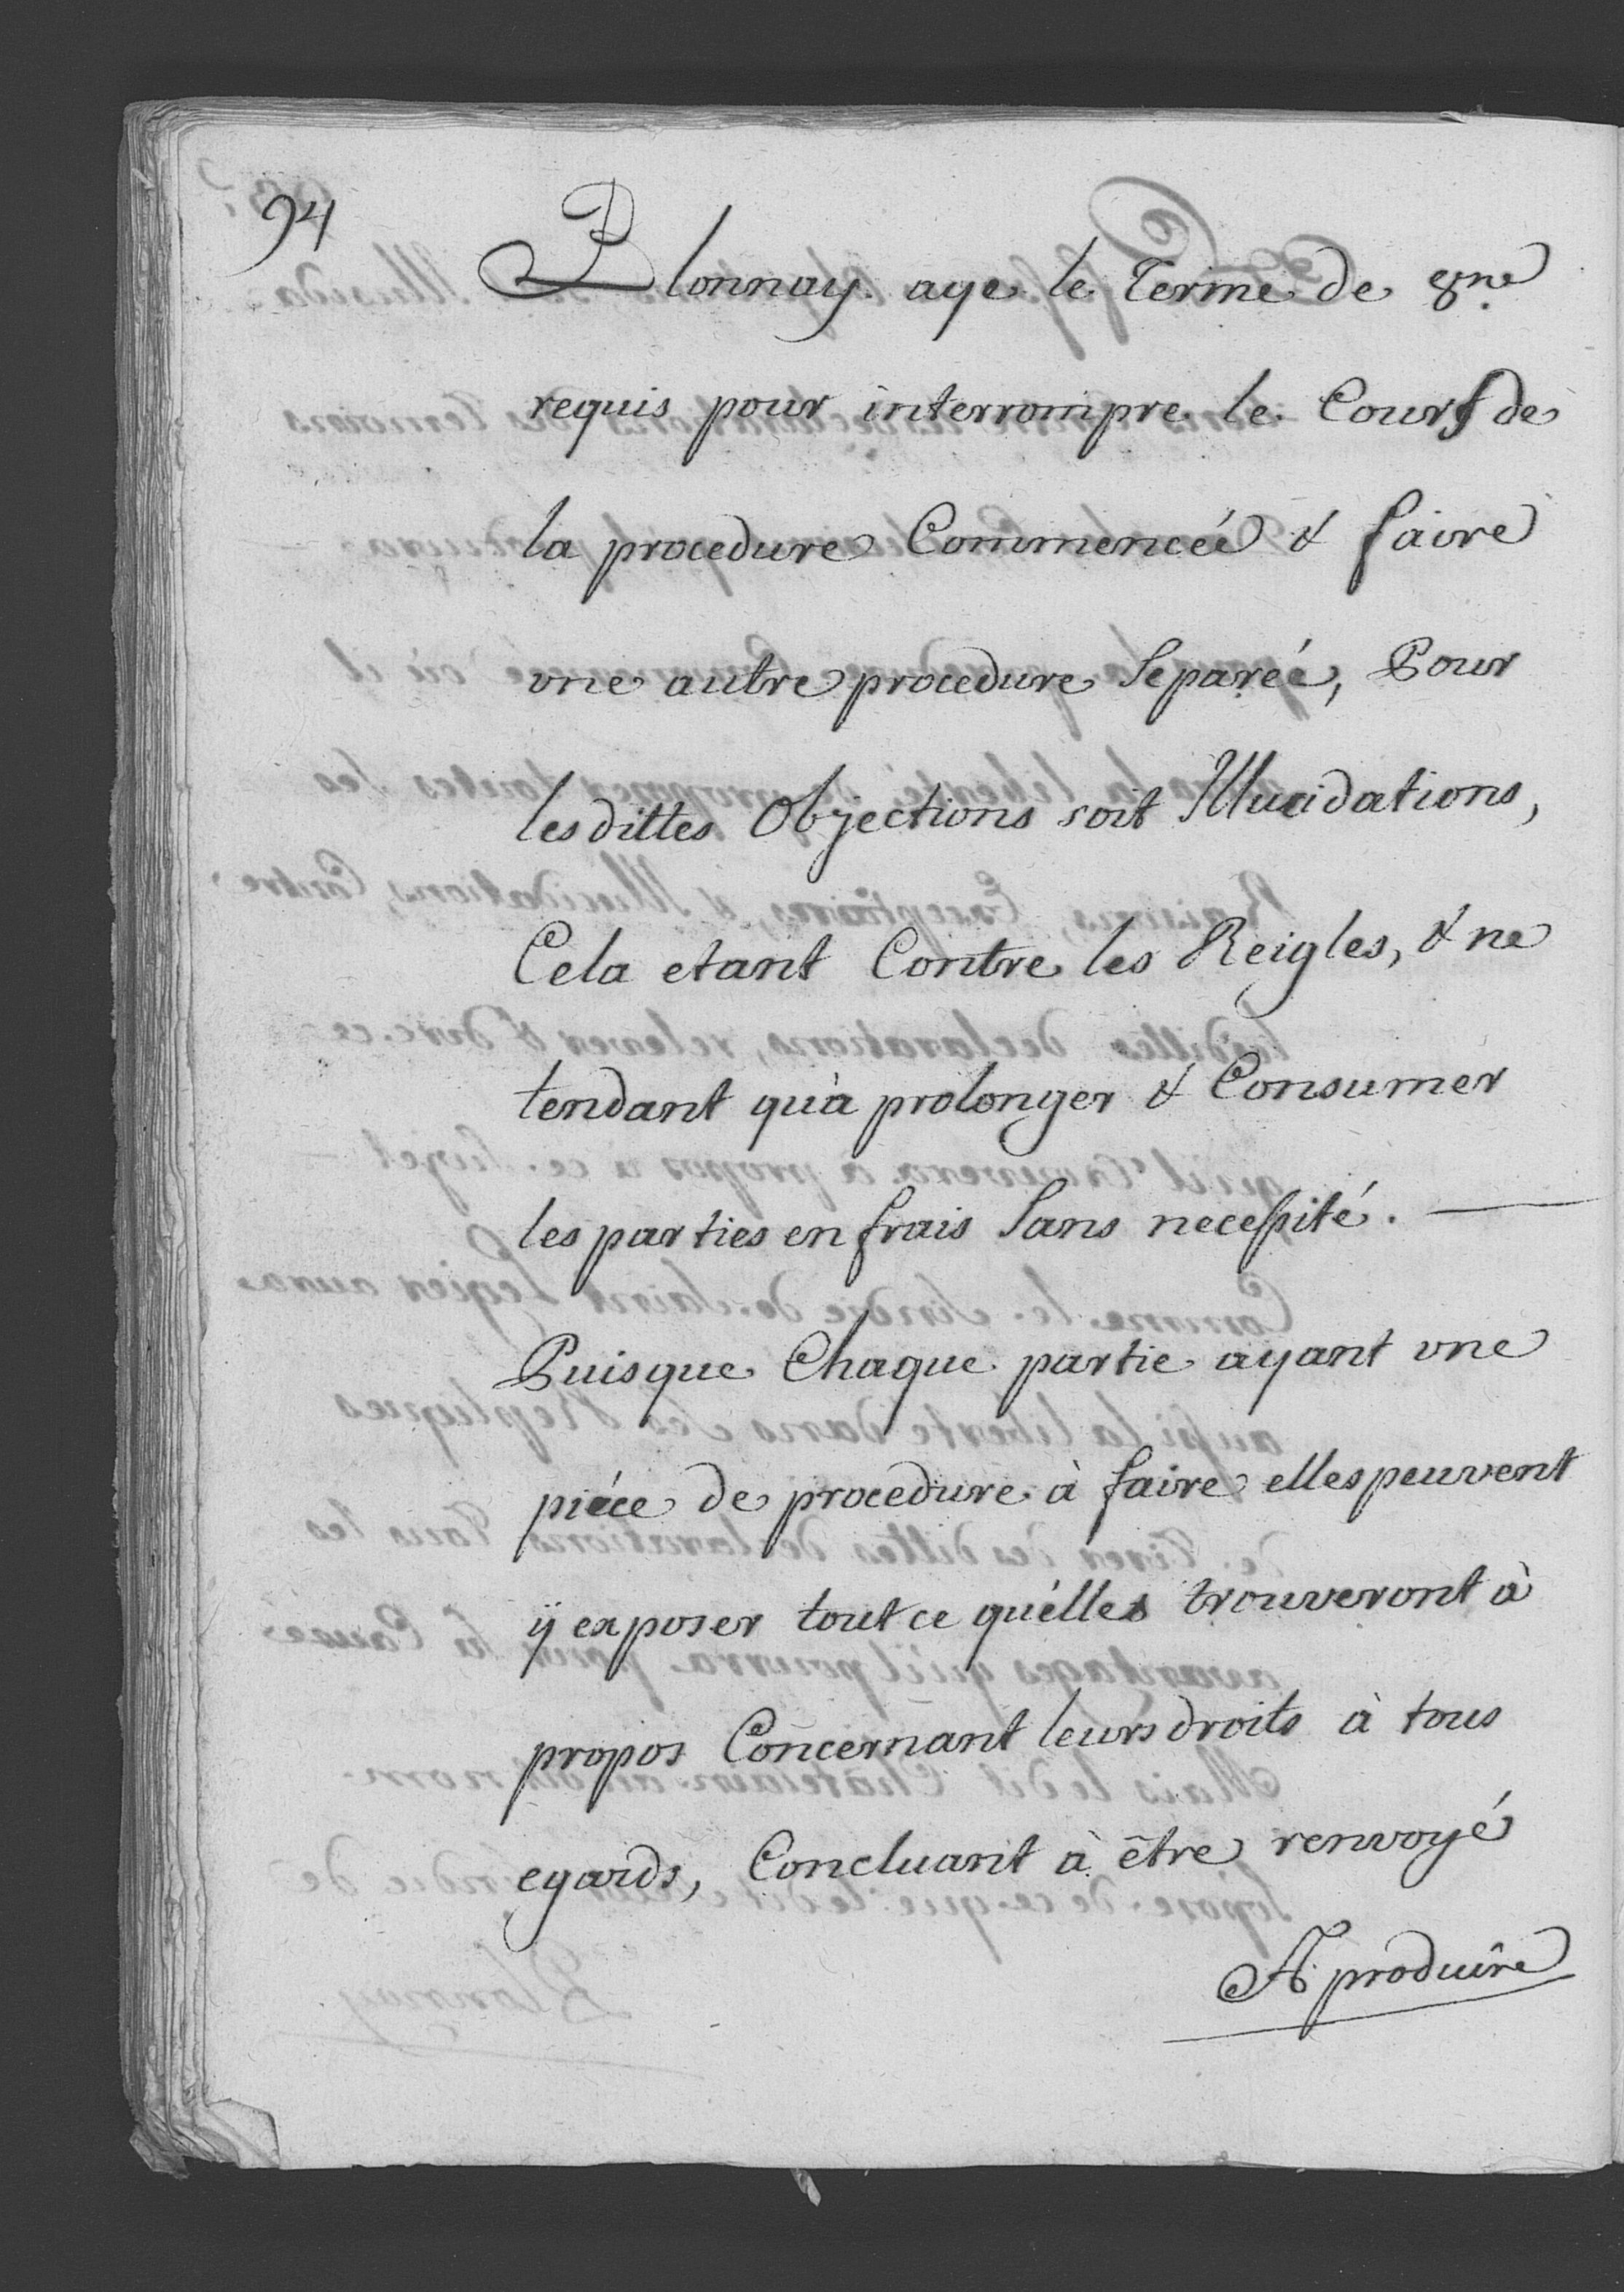 94
Blonnay aye le Terme de 8ne
requis pour interrompre le Cours de
la procedure Commenceé & faire
une autre procedure Separeé, Pour
les dittes Objections soit Illucidations,
Cela etant Contre les Reigles, & ne
tendant qu'à prolonger & Consumer
les parties en frais Sans necessité. —
Puisque Chaque partie ayant une
piéce de procedure à faire elles peuvent
ÿ exposer tout ce qu'élles trouveront à
propos Concernant leurs droits à tous
egards, Concluant à être renvoyé
A produire